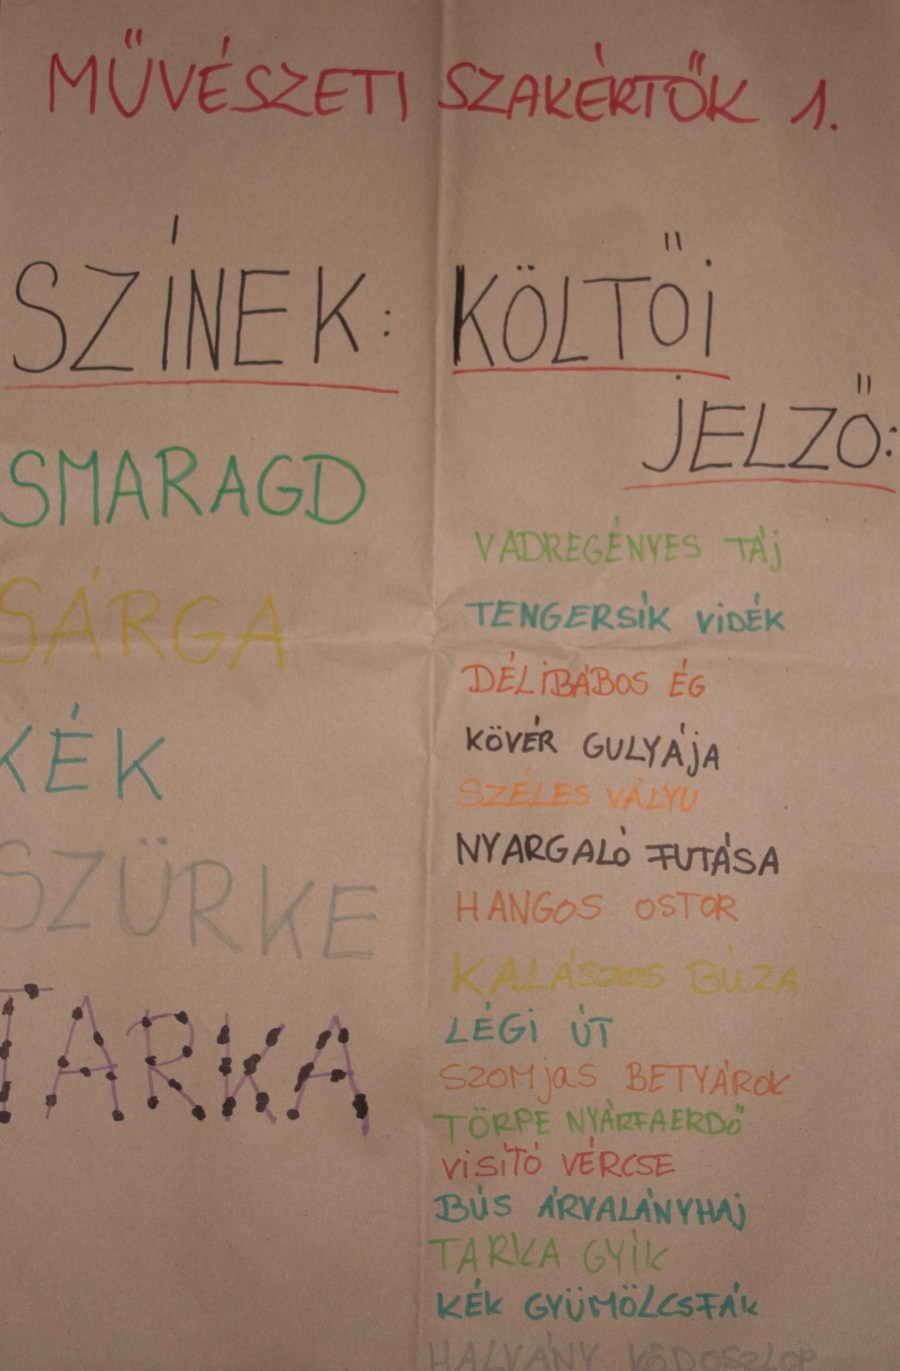 MŰVÉSZETI SZAKÉRTŐK 1.
SZÍNEK:
SMARAGD
SÁRGA
KÉK
SZÜRKE
TARKA
KÖLTŐI
JELZŐ:
VADREGÉNYES TÁJ
TENGERSÍK VIDÉK
DÉLIBÁBOS ÉG
KÖVÉR GULYÁJA
SZÉLES VÁLYU
NYARGALÓ FUTÁSA
HANGOS OSTOR
KALÁSZOS BÚZA
LÉGI ÚT
SZOMJAS BETYÁROK
TÖRPE NYÁRFAERDŐ
VISÍTÓ VÉRCSE
BÚS ÁRVALÁNYHAJ
TARKA GYÍK
KÉK GYÜMÖLCSFÁK
HALVÁNY KÖDOSZLOP